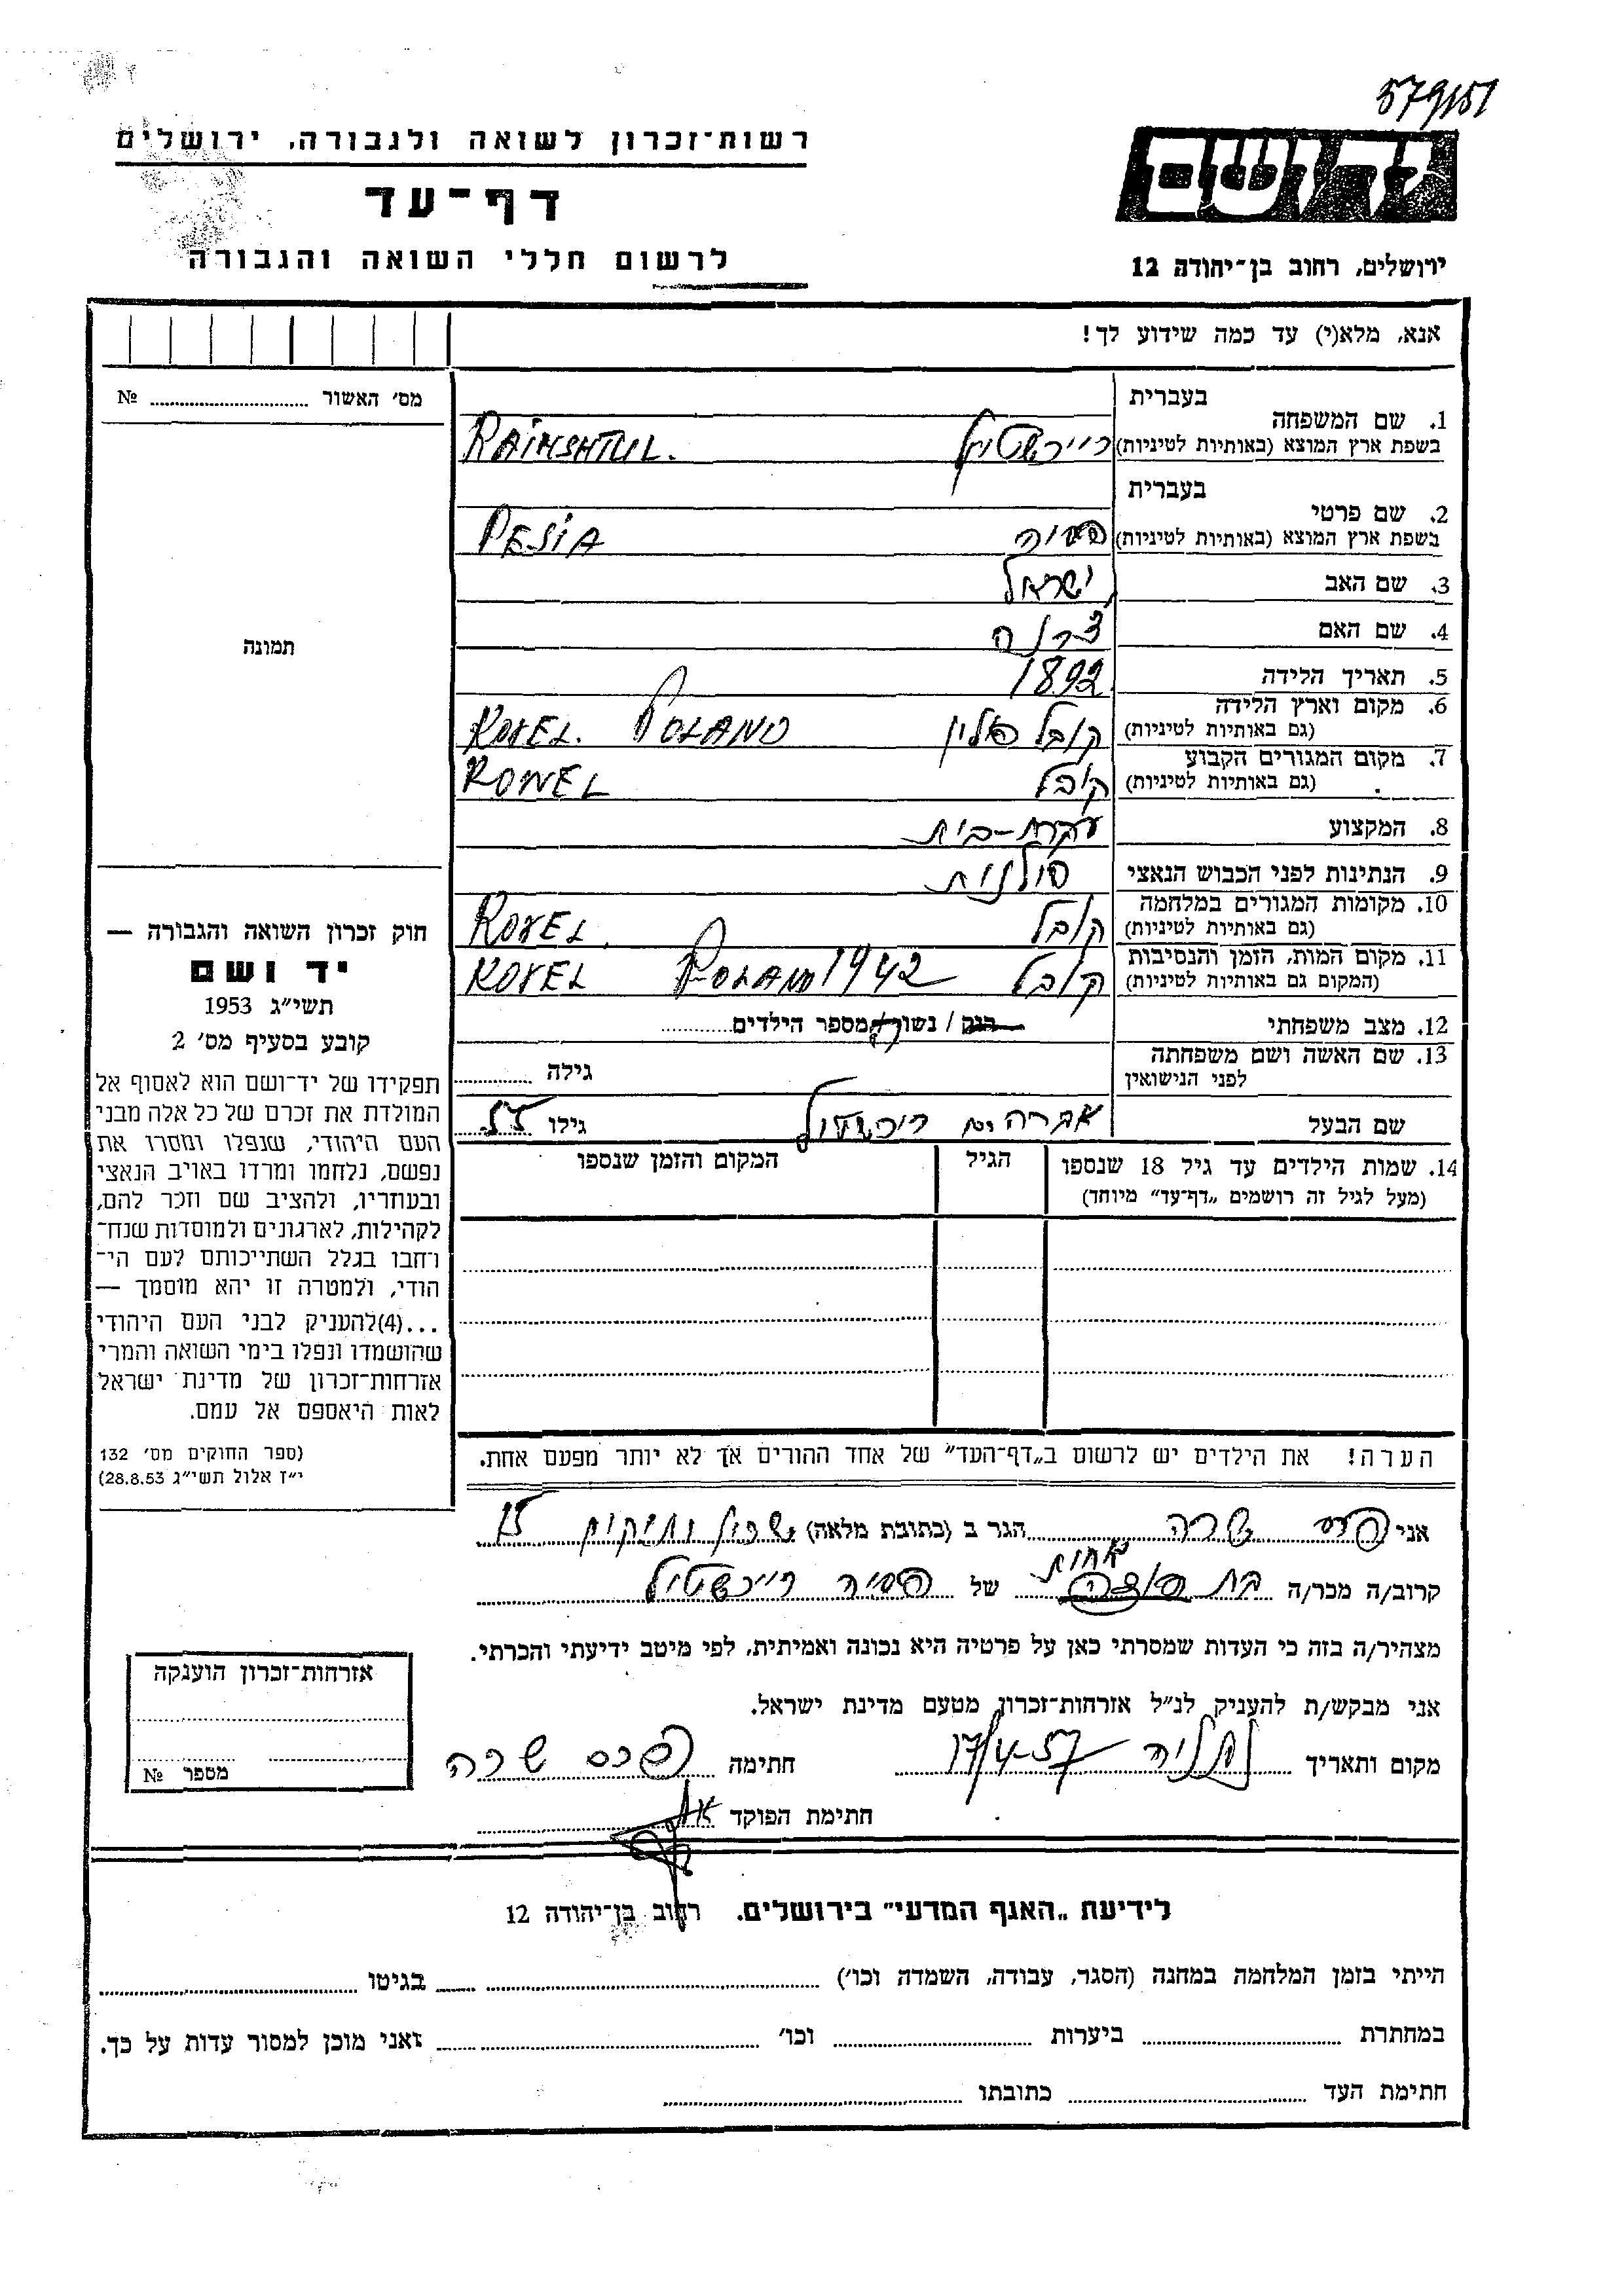 579/151
יד ושם
ירושלים, רחוב בן־יהודה 12
רשות־זכרון לשואה ולגבורה, ירושלים
דף־עד
לרשום חללי השואה והגבורה
אנא, מלא(י) עד כמה שידוע לך!
מס׳ האשור № ....................
תמונה
חוק זכרון השואה והגבורה —
יד ושם
תשי״ג 1953
קובע בסעיף מס׳ 2
תפקידו של יד־ושם הוא לאסוף אל
המולדת את זכרם של כל אלה מבני
העם היהודי, שנפלו ומסרו את
נפשם, נלחמו ומרדו באויב הנאצי
ובעוזריו, ולהציב שם וזכר להם,
לקהילות, לארגונים ולמוסדות שנח־
רחבו בגלל השתייכותם לעם הי־
הודי, ולמטרה זו יהא מוסמך —
...(4)להעניק לבני העם היהודי
שהושמדו ונפלו בימי השואה והמרי
אזרחות־זכרון של מדינת ישראל
לאות היאספם אל עמם.
(ספר החוקים מס׳ 132
י״ז אלול תשי״ג 28.8.53)
בעברית
1. שם המשפחה
בשפת ארץ המוצא (באותיות לטיניות) RAINSHTUL.
בעברית
2. שם פרטי
בשפת ארץ המוצא (באותיות לטיניות) פסיה PESIA
3. שם האב ישראל
4. שם האם
5. תאריך הלידה 1892
6. מקום וארץ הלידה
(גם באותיות לטיניות) קובל פולין KOVEL. POLAND
7. מקום המגורים הקבוע
(גם באותיות לטיניות) קובל KOWEL
8. המקצוע עקרת-בית
9. הנתינות לפני הכבוש הנאצי פולנית
10. מקומות המגורים במלחמה
(גם באותיות לטיניות) קובל KOVEL
11. מקום המות, הזמן והנסיבות
(המקום גם באותיות לטיניות) קובל POLAND 1942 KOVEL
12. מצב משפחתי רוק / נשוי/ה מספר הילדים............
13. שם האשה ושם משפחתה
לפני הנישואין גילה ............
שם הבעל אברהם גילו
14. שמות הילדים עד גיל 18 שנספו הגיל המקום והזמן שנספו
(מעל לגיל זה רושמים „דף־עד״ מיוחד)
הערה! את הילדים יש לרשום ב„דף־העד״ של אחד ההורים אך לא יותר מפעם אחת.
אני שרה הגר ב (כתובת מלאה) שכון ותיקים
קרוב/ה מכר/ה בת אחות של פסיה
מצהיר/ה בזה כי העדות שמסרתי כאן על פרטיה היא נכונה ואמיתית, לפי מיטב ידיעתי והכרתי.
אני מבקש/ת להעניק לנ״ל אזרחות־זכרון מטעם מדינת ישראל.
מקום ותאריך נתניה 17/4-57 חתימה שרה
חתימת הפוקד
אזרחות־זכרון הוענקה
מספר №
לידיעת „האגף המדעי״ בירושלים. רחוב בן־יהודה 12
הייתי בזמן המלחמה במחנה (הסגר, עבודה, השמדה וכו׳) .................... בגיטו ....................
במחתרת .................... ביערות .................... וכו׳ .................... ואני מוכן למסור עדות על כך.
חתימת העד .................... כתובתו ....................